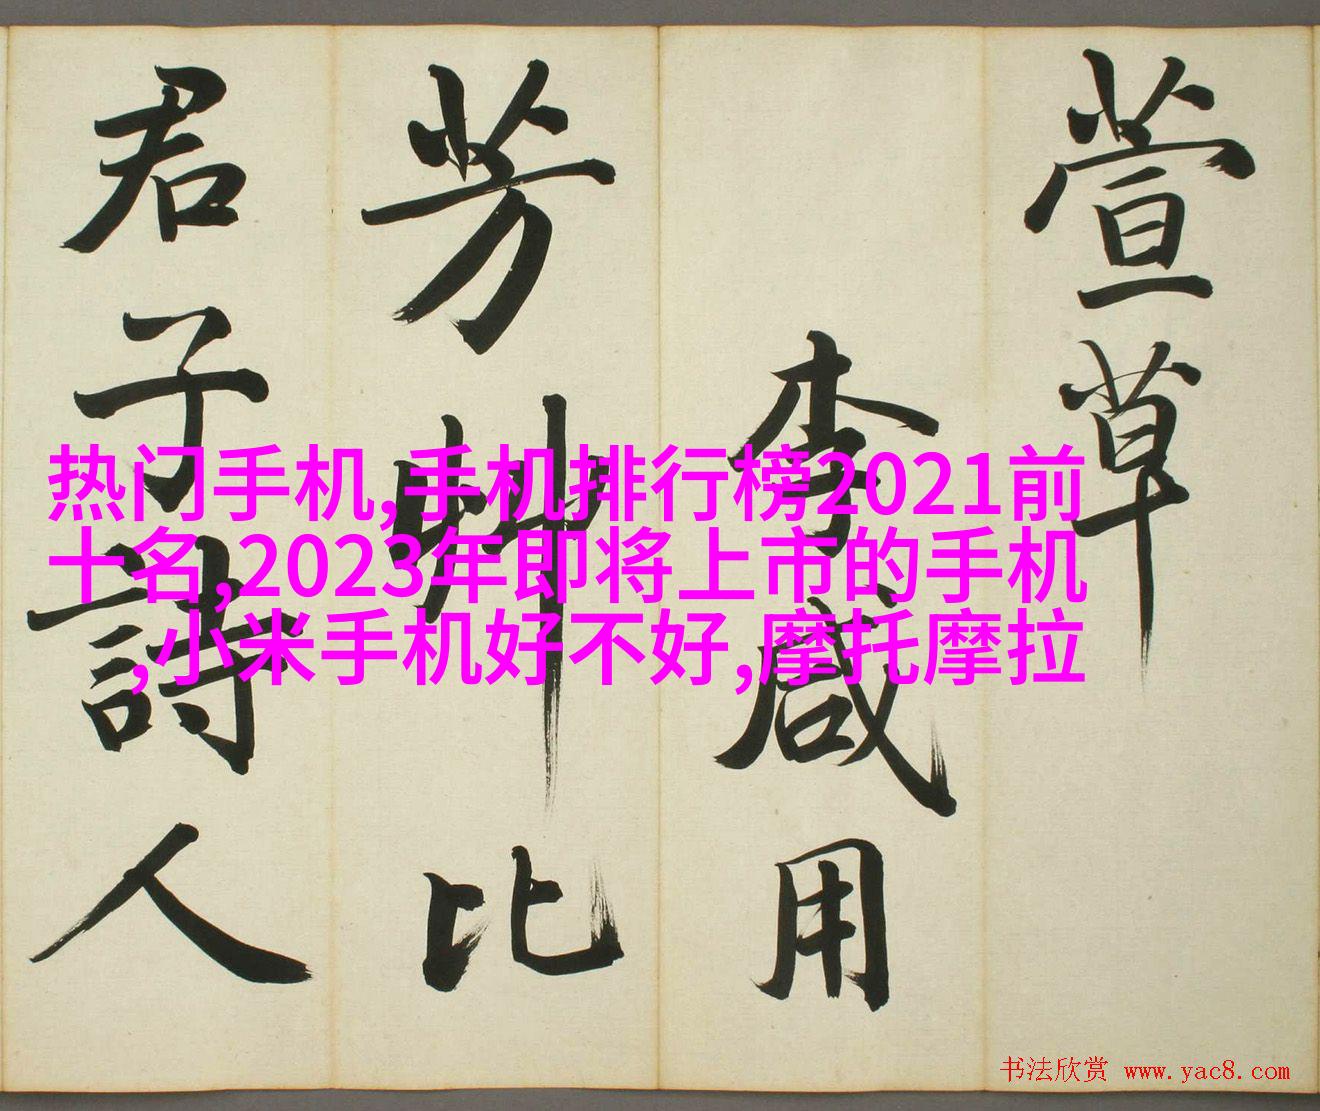 萱草
李咸用
芳艸比
君子詩人
热门手机,手机排行榜2021前
十名,2023年即将上市的手机
,小米手机好不好,摩托摩拉
书法欣赏 www.yac8.com